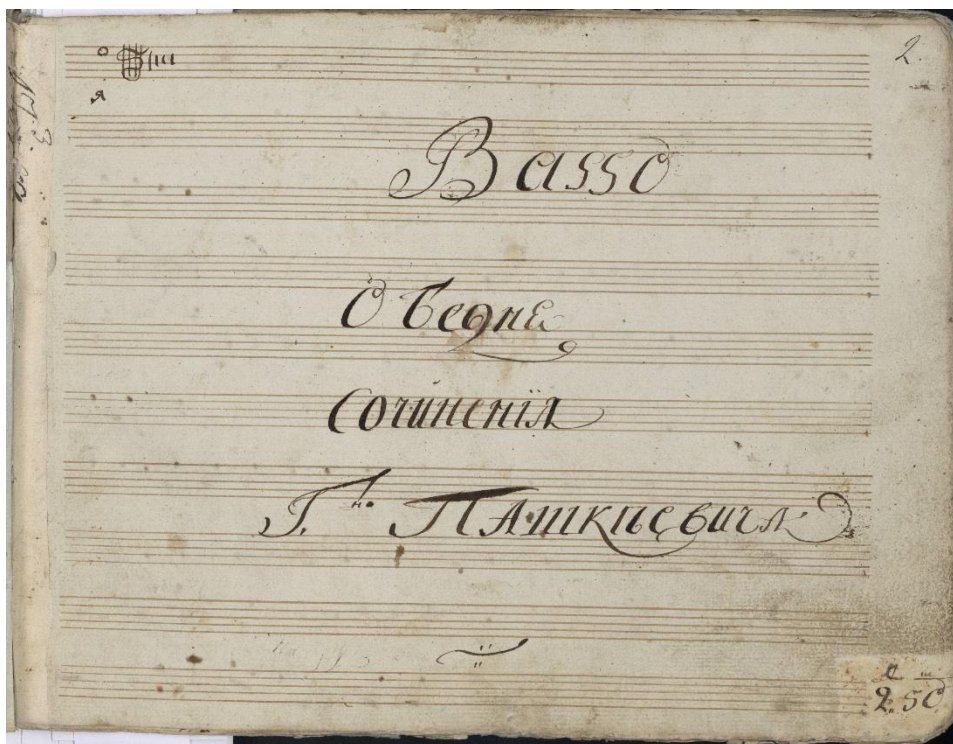 2.
Basso
Обедне
Сочиненїя
Г.на Пашкѣевича
2. 50